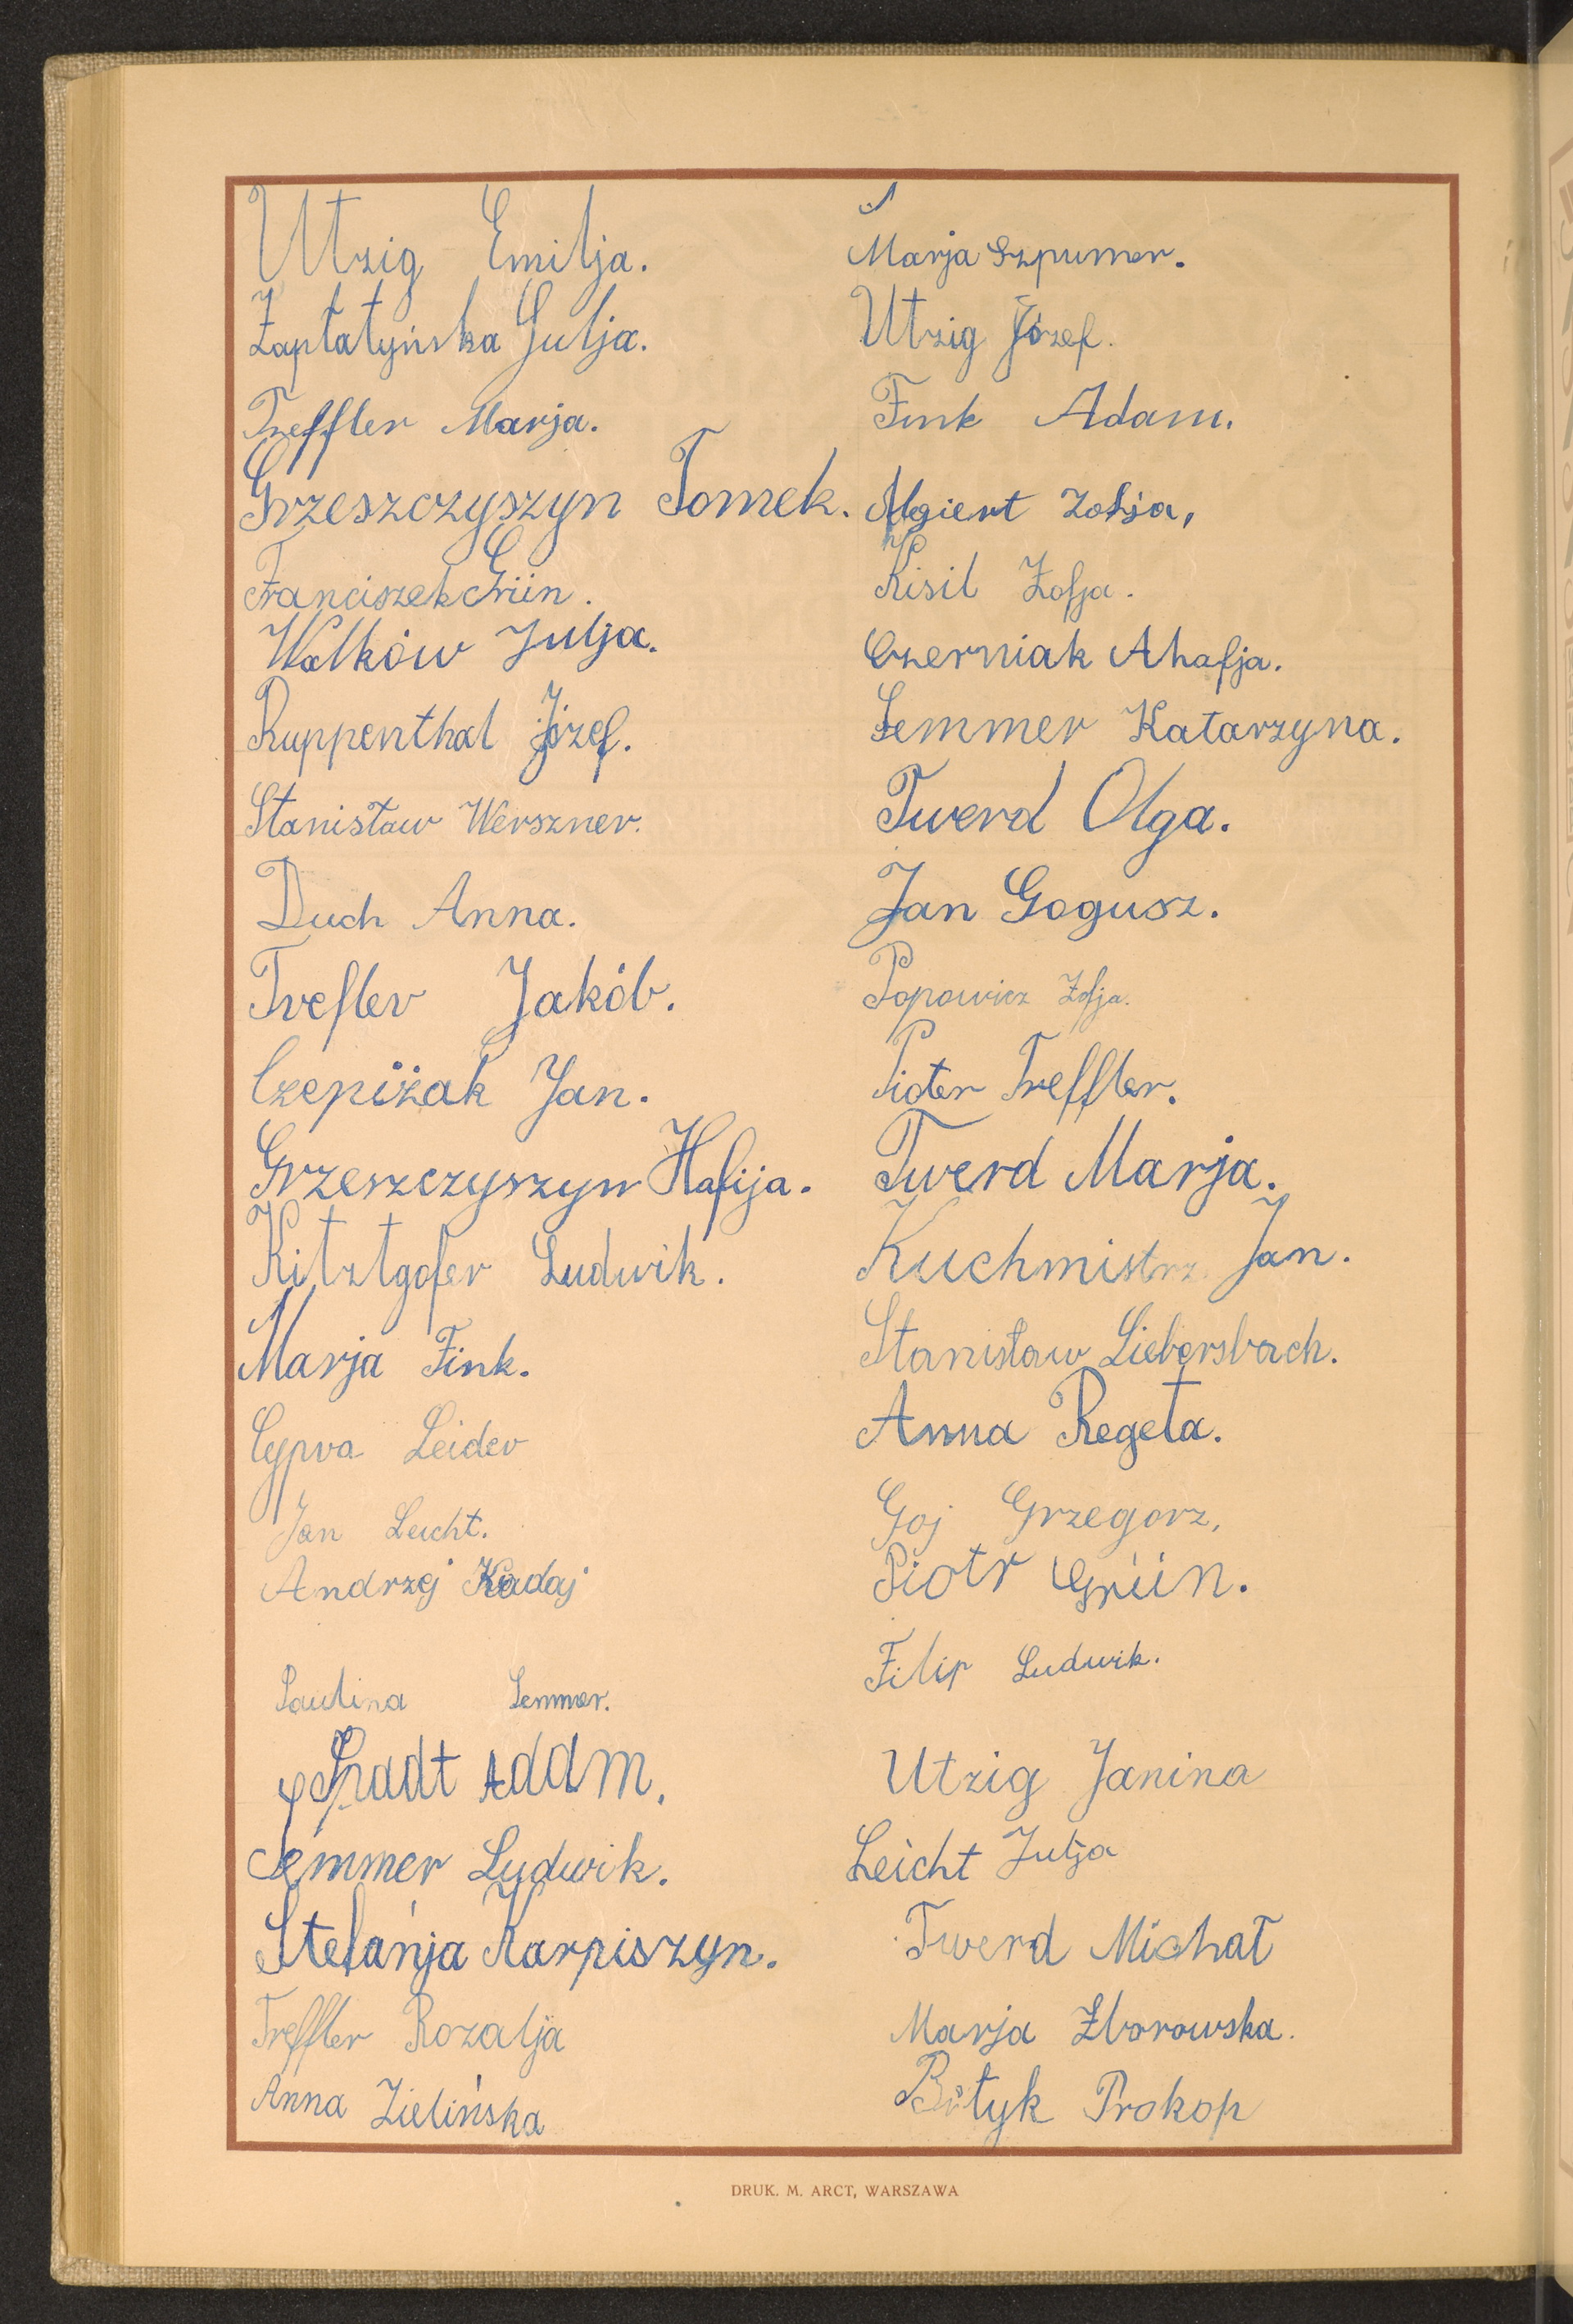 Utzig Emilja.
Zapłatyńska Julja.
Treffler Marja.
Grzeszczyszyn Tomek.
Franciszek Grün.
Wałków Julja.
Ruppenthal Józef.
Stanisław Werszner.
Duch Anna.
Trefler Jakób.
Czepiżak Jan.
Grzeszczyszyn Hafija.
Kitztgofer Ludwik.
Marja Fink.
Cypra Leider
Jan Leicht.
Andrzej Kadaj
Paulina Semmer.
Spadt Adam.
Semmer Ludwik.
Stefanja Karpiszyn.
Treffler Rozalja
Anna Zielińska
Marja Szpumer.
Utzig Józef.
Fink Adam.
Algiert Zofja,
Kisil Zofja.
Czerniak Ahafja.
Semmer Katarzyna.
Twerd Olga.
Jan Gogusz.
Popowicz Zofja.
Pioter Treffler.
Twerd Marja.
Kuchmistrz Jan.
Stanisław Liebersbach.
Anna Regeta.
Goj Grzegorz,
Piotr Grün.
Filip Ludwik.
Utzig Janina
Leicht Julja
Twerd Michał
Marja Zborowska.
Prokop
DRUK. M. ARCT, WARSZAWA